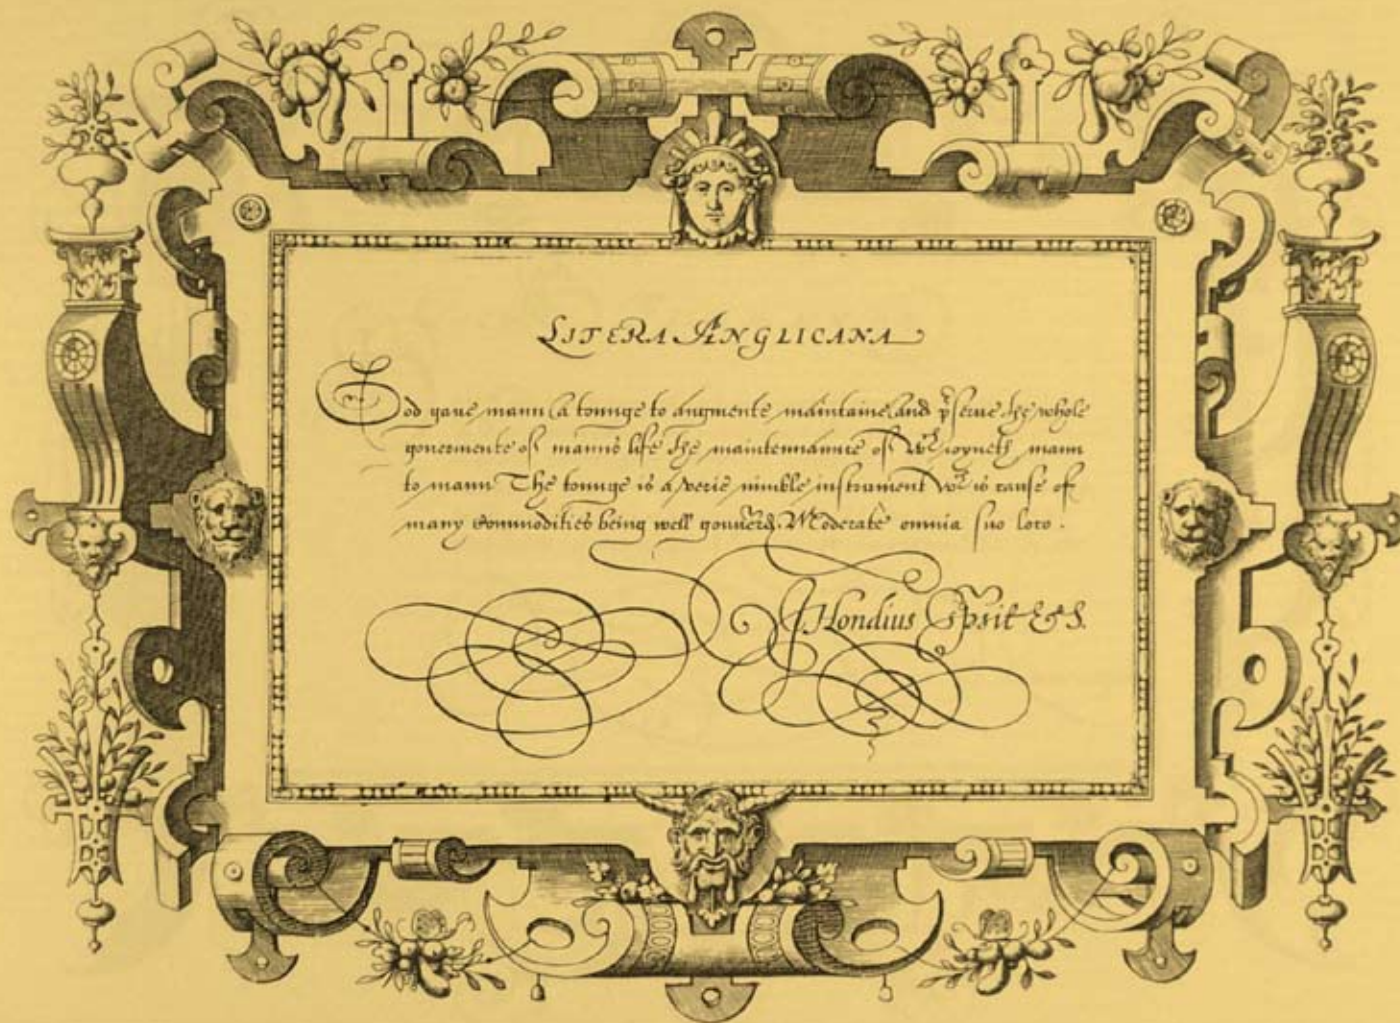 LITERA ANGLICANA
God gaue mann a tounge to augmente maintaine and pserue the whole
gouermente of manns life the maintennance of wch ioyneth mann
to mann The tounge is a verie nimble instrument wch is cause of
many commodities being well gouuerd. Moderate omnia suo loco.
Hondius spsit & S.